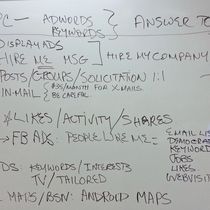 PC- ADWORDS ANSWER TO
KEYWORDS
DISPLAY ADS
HIRE ME MSG HIRE MY COMPANY
POSTS/GROUPS/SOLICITATION 1:1
IN-MAIL $35/MONTH FOR X-MAILS
BE CAREFUL
*LIKES/ACTIVITY/SHARES
→ FB ADS: PEOPLE LIKE ME: EMAIL LIS
DEMOGRA
KEYWOR
JOBS
LIKES
WEBVISIT
DS: KEYWORDS/INTERESTS
TV/TAILORED
MAPS/BSN: ANDROID MAPS